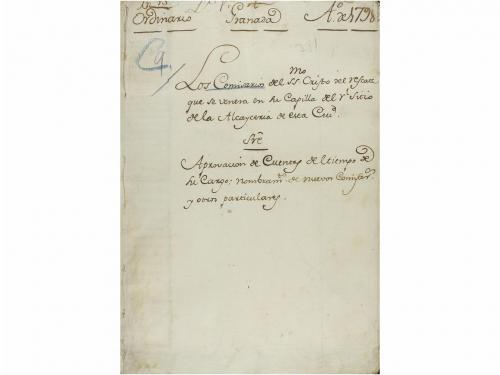 Ordinario Granada Aº de 1798
Los Comisarios del SSmo Cristo del rescate
que se venera en su Capilla del Rl Sitio
de la Alcayceria de esta Ciud.
Sre
Aprovación de Cuentas del tiempo de
su Cargo; nombramto de nuevos Comisar.s
y otros particulares.